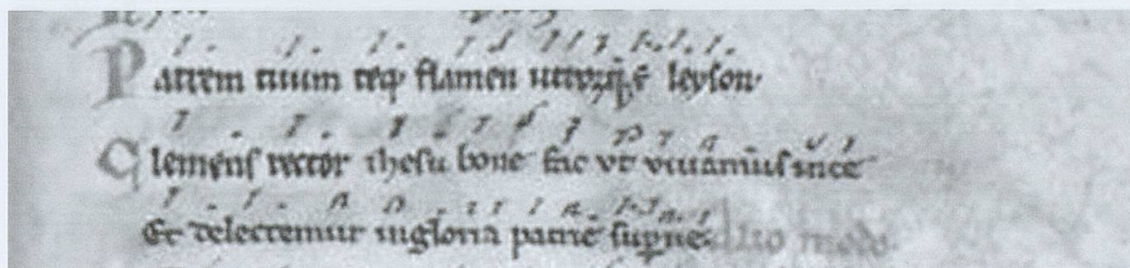 Patrem tuum teq; flamen utrorūq̃ e leyson·
Clemens rector ihesu bone fac ut uiuamus in te
Et delectemur in gloria patrie superne· Alio modo.